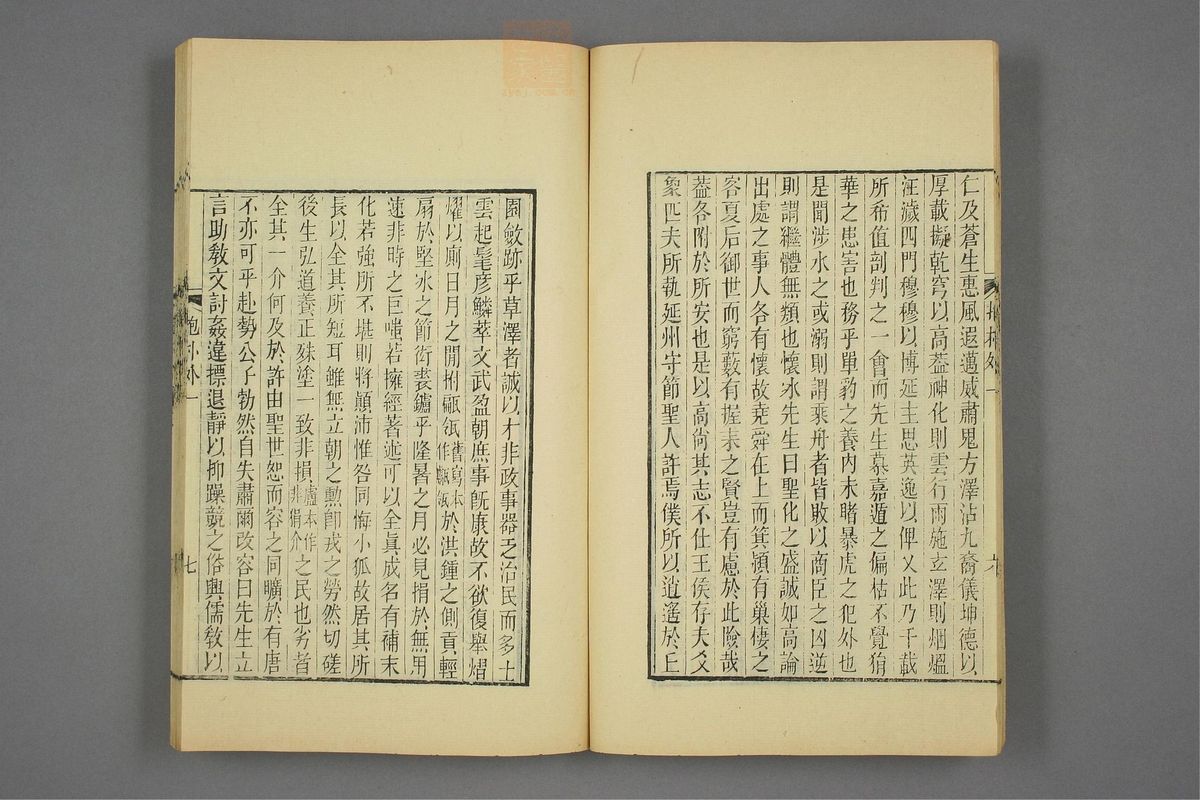 仁及蒼生惠風遐邁威肅鬼方澤沾九裔儀坤德以
厚載擬乾穹以高葢神化則雲行雨施玄澤則烟熅
汪濊四門穆穆以博延主思英逸以俾乂此乃千載
所希值剖判之一會而先生慕嘉遁之偏枯不覺狷
華之患害也務乎單豹之養內未睹暴虎之犯外也
是聞涉水之或溺則謂乘舟者皆敗以商臣之凶逆
則謂繼體無類也懷冰先生曰聖化之盛誠如高論
出處之事人各有懷故堯舜在上而箕潁有巢棲之
客夏后御世而窮藪有握耒之賢豈有慮於此險哉
葢各附於所安也是以高尚其志不仕王侯存夫爻
象匹夫所執延州守節聖人許焉僕所以逍遙於丘
園斂跡乎草澤者誠以才非政事器乏治民而多士
雲起髦彥鱗萃文武盈朝庶事旣康故不欲復舉熠
燿以廁日月之閒拊甂瓴舊寫本作甂瓴於洪鍾之側貢輕
扇於堅冰之節衒裘鑪乎隆暑之月必見捐於無用
速非時之巨嗤若擁經著述可以全眞成名有補末
化若強所不堪則將顛沛惟咎同悔小狐故居其所
長以全其所短耳雖無立朝之勳卽戎之勞然切磋
後生弘道養正殊塗一致非損盧本作非捐介之民也劣者
全其一介何及於許由聖世恕而容之同曠於有唐
不亦可乎赴勢公子勃然自失肅爾改容曰先生立
言助敎文討姦違摽退靜以抑躁競之俗興儒敎以
抱朴外一
七